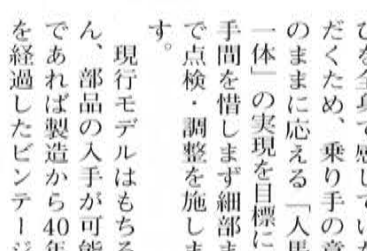 びを全身で感じていた
だくため、乗り手の意
のままに応える「人馬
一体」の実現を目標に
手間を惜しまず細部ま
で点検・調整を施しま
す。
現行モデルはもちろ
ん、部品の入手が可能
であれば製造から40年
を経過したビンテージ